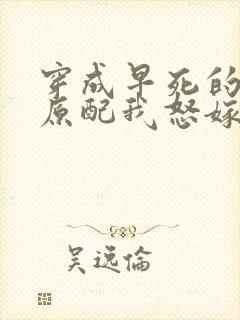 穿成早死的
原配我怒嫁
吴远倫